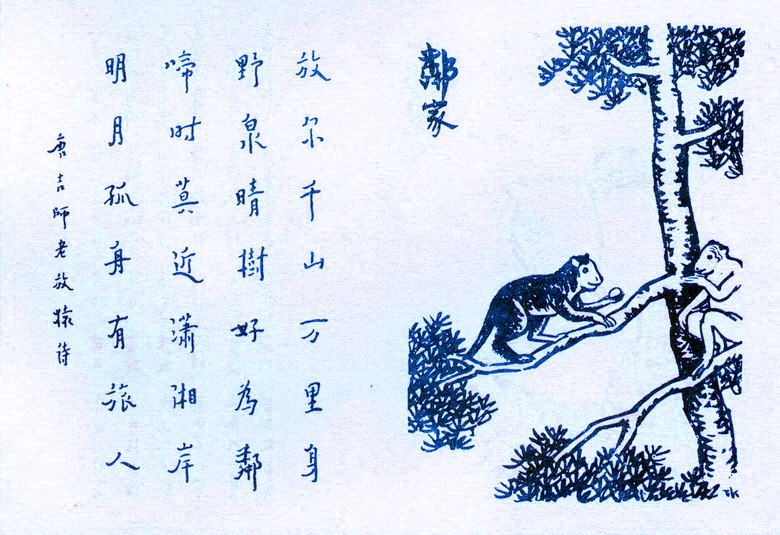 鄰家
放尔千山万里身
野泉晴樹好為鄰
啼时莫近瀟湘岸
明月孤舟有旅人
唐吉師老放猿诗
TK